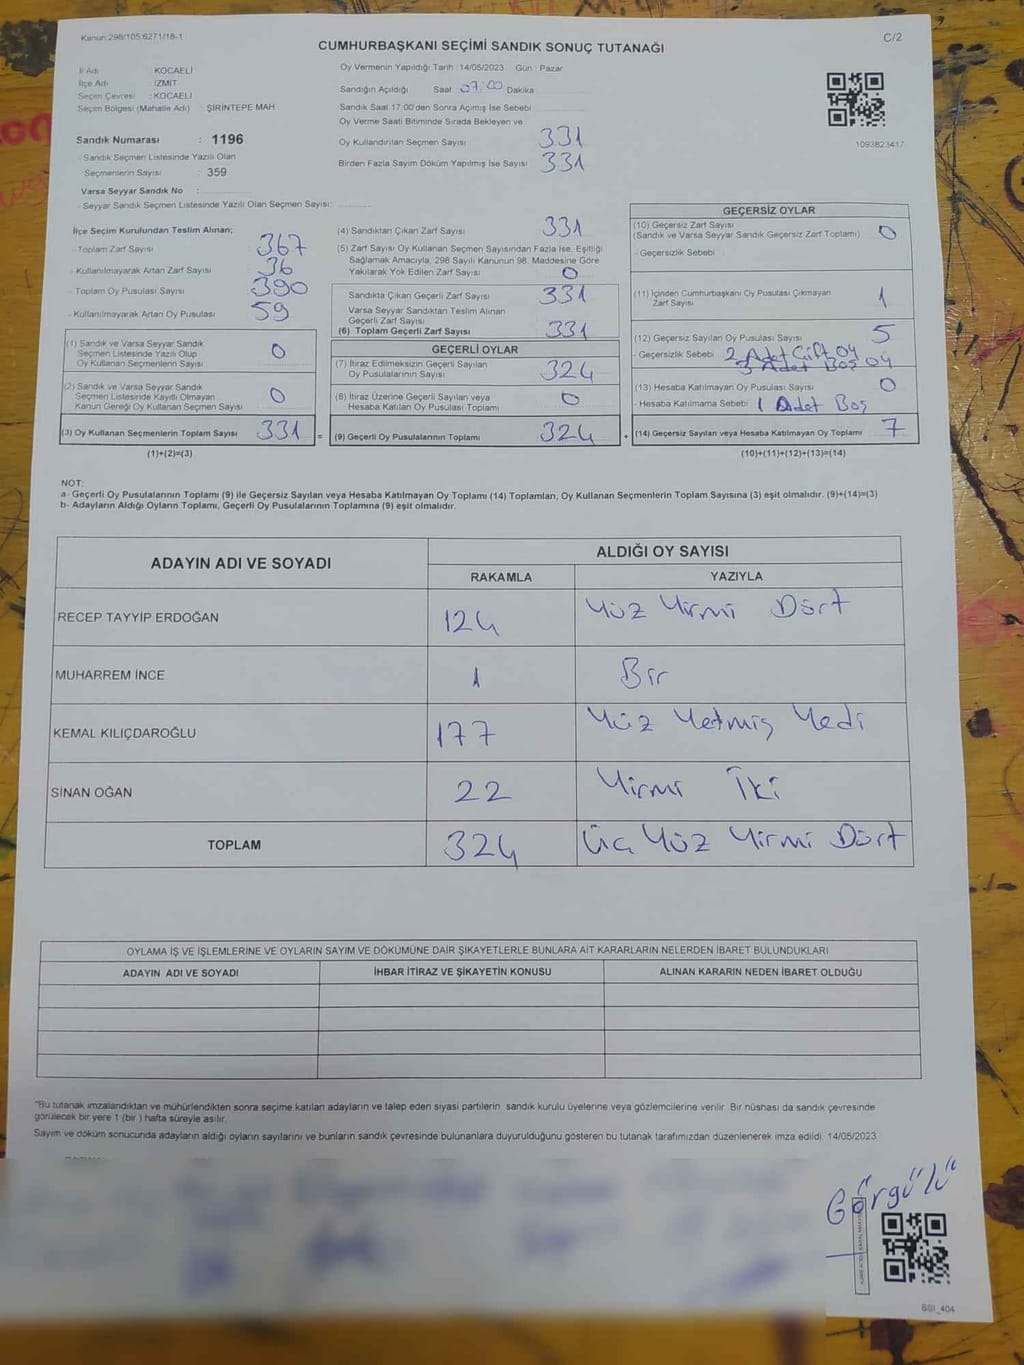 Kanun:298/105;6271/18-1
C/2
CUMHURBAŞKANI SEÇİMİ SANDIK SONUÇ TUTANAĞI
İl Adı : KOCAELİ
İlçe Adı : İZMİT
Seçim Çevresi : KOCAELİ
Seçim Bölgesi (Mahalle Adı) : ŞİRİNTEPE MAH
Sandık Numarası : 1196
Sandık Seçmen Listesinde Yazılı Olan
Seçmenlerin Sayısı : 359
Varsa Seyyar Sandık No :
- Seyyar Sandık Seçmen Listesinde Yazılı Olan Seçmen Sayısı:
Oy Vermenin Yapıldığı Tarih : 14/05/2023 Gün : Pazar
Sandığın Açıldığı Saat 07:00 Dakika
Sandık Saat 17:00'den Sonra Açımış İse Sebebi
Oy Verme Saati Bitiminde Sırada Bekleyen ve
Oy Kullandırılan Seçmen Sayısı 331
Birden Fazla Sayım Döküm Yapılmış İse Sayısı 331
1093823417
İlçe Seçim Kurulundan Teslim Alınan;
- Toplam Zarf Sayısı 367
- Kullanılmayarak Artan Zarf Sayısı 36
- Toplam Oy Pusulası Sayısı 390
- Kullanılmayarak Artan Oy Pusulası 59
(1) Sandık ve Varsa Seyyar Sandık
Seçmen Listesinde Yazılı Olup
Oy Kullanan Seçmenlerin Sayısı 0
(2) Sandık ve Varsa Seyyar Sandık
Seçmen Listesinde Kayıtlı Olmayan
Kanun Gereği Oy Kullanan Seçmen Sayısı 0
(3) Oy Kullanan Seçmenlerin Toplam Sayısı 331 =
(1)+(2)=(3)
(4) Sandıktan Çıkan Zarf Sayısı 331
(5) Zarf Sayısı Oy Kullanan Seçmen Sayısından Fazla İse, Eşitliği
Sağlamak Amacıyla; 298 Sayılı Kanunun 98. Maddesine Göre
Yakılarak Yok Edilen Zarf Sayısı 0
Sandıkta Çıkan Geçerli Zarf Sayısı 331
Varsa Seyyar Sandıktan Teslim Alınan
Geçerli Zarf Sayısı
(6) Toplam Geçerli Zarf Sayısı 331
GEÇERLİ OYLAR
(7) İtiraz Edilmeksizin Geçerli Sayılan
Oy Pusulalarının Sayısı 324
(8) İtiraz Üzerine Geçerli Sayılan veya
Hesaba Katılan Oy Pusulası Toplamı 0
(9) Geçerli Oy Pusulalarının Toplamı 324 +
GEÇERSİZ OYLAR
(10) Geçersiz Zarf Sayısı
(Sandık ve Varsa Seyyar Sandık Geçersiz Zarf Toplamı) 0
- Geçersizlik Sebebi
(11) İçinden Cumhurbaşkanı Oy Pusulası Çıkmayan
Zarf Sayısı 1
(12) Geçersiz Sayılan Oy Pusulası Sayısı 5
- Geçersizlik Sebebi 2 Adet Çift Oy
3 Adet Boş Oy
(13) Hesaba Katılmayan Oy Pusulası Sayısı 0
- Hesaba Katılmama Sebebi 1 Adet Boş
(14) Geçersiz Sayılan veya Hesaba Katılmayan Oy Toplamı 7
(10)+(11)+(12)+(13)=(14)
NOT:
a- Geçerli Oy Pusulalarının Toplamı (9) ile Geçersiz Sayılan veya Hesaba Katılmayan Oy Toplamı (14) Toplamları, Oy Kullanan Seçmenlerin Toplam Sayısına (3) eşit olmalıdır. (9)+(14)=(3)
b- Adayların Aldığı Oyların Toplamı, Geçerli Oy Pusulalarının Toplamına (9) eşit olmalıdır.
ADAYIN ADI VE SOYADI ALDIĞI OY SAYISI
RAKAMLA YAZIYLA
RECEP TAYYİP ERDOĞAN 124 Yüz Yirmi Dört
MUHARREM İNCE 1 Bir
KEMAL KILIÇDAROĞLU 177 Yüz Yetmiş Yedi
SİNAN OĞAN 22 Yirmi İki
TOPLAM 324 Üç Yüz Yirmi Dört
OYLAMA İŞ VE İŞLEMLERİNE VE OYLARIN SAYIM VE DÖKÜMÜNE DAİR ŞİKAYETLERLE BUNLARA AİT KARARLARIN NELERDEN İBARET BULUNDUKLARI
ADAYIN ADI VE SOYADI İHBAR İTİRAZ VE ŞİKAYETİN KONUSU ALINAN KARARIN NEDEN İBARET OLDUĞU
"Bu tutanak imzalandıktan ve mühürlendikten sonra seçime katılan adayların ve talep eden siyasi partilerin sandık kurulu üyelerine veya gözlemcilerine verilir. Bir nüshası da sandık çevresinde
görülecek bir yere 1 (bir ) hafta süreyle asılır.
Sayım ve döküm sonucunda adayların aldığı oyların sayılarını ve bunların sandık çevresinde bulunanlara duyurulduğunu gösteren bu tutanak tarafımızdan düzenlenerek imza edildi. 14/05/2023
Görgülü
SSI_404